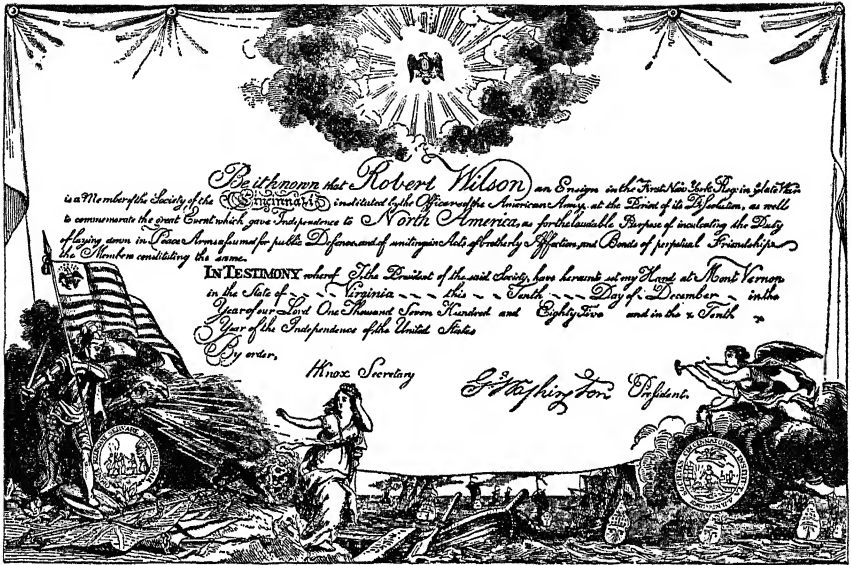 Be it known that Robert Wilson an Ensign in the First New York Reg: in ye late War
is a Member of the Society of the Cincinnati; instituted by the Officers of the American Army, at the Period of its Dissolution, as well
to commemorate the great Event which gave Independence to North America, as for the laudable Purpose of inculcating the Duty
of laying down in Peace Arms assumed for public Defence, and of uniting in Acts of brotherly Affection, and Bonds of perpetual Friendship
the Members constituting the same.
IN TESTIMONY whereof I, the President of the said Society, have hereunto set my Hand at Mont Vernon
in the State of Virginia this Tenth Day of December in the
Year of our Lord One Thousand Seven Hundred and Eighty Five and in the Tenth
Year of the Independence of the United States
By order,
HKnox Secretary
G:Washington President.